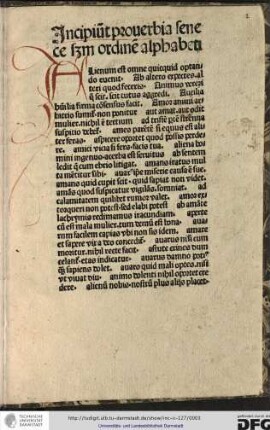 Incipiūt prouerbia sene
ce scdm ordinē alphabeti
Alienum est omne quicquid optan
do euenit· Ab altero expectes al
teri quod feceris· Animus vereri
q̄ scit· scit tutus aggredi· Auxilia
humilia firma cōsensus facit· Amor animi ar
bitrio sumit· non ponitur aut amat aut odit
mulier· nichil ē tercium ad tristē
suspitio rebel· ames parētē si equus est· aliter
feras· aspicere oportet quod possis perde
re· amici vicia si feras facis tua· aliena ho
mini ingenuo acerba est seruitus absentem
ledit q̄ cum ebrio litigat· amans iratus mul
ta mētitur sibi· auarus ipse miserie causa ē sue·
amans quid cupit scit· quid sapiat non videt·
amās quod suspicatur vigilās somniat· ad
calamitatem quilibet rumor valet· amor ex
torqueri non potest sed elabi potest ab amāte
lachrymis redimas iracundiam· aperte
cū est mala mulier· tum demū est bona· aua
rum facilem capias vbi non sis idem· amare
et sapere vix a deo conceditur· auarus nisi cum
moritur· nihil recte facit· astute crimen dum
celatur etas indicat· auarus damno poti⁹
q̄ sapiens dolet· auaro quid mali optes· nisi
vt viuat diu· animo dolenti nihil oportet cre
dere· alienū nobis· nostrū plus alijs placet·
TECHNISCHE UNIVERSITÄT DARMSTADT
http://tudigit.ulb.tu-darmstadt.de/show/inc-iv-127/0003
Universitäts- und Landesbibliothek Darmstadt
gefördert durch die
DFG